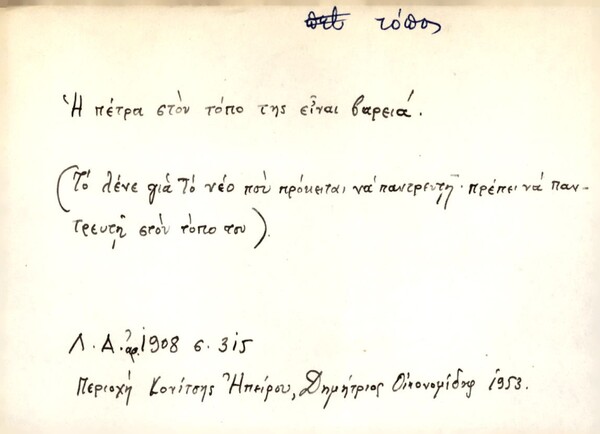 τόπος
Ἡ πέτρα στὸν τόπο της εἶναι βαρειά.
(Τὸ λένε γιὰ τὸ νέο ποὺ πρόκειται νὰ παντρευτῇ· πρέπει νὰ παν-
τρευτῇ στὸν τόπο του).
Λ. Α. ἀρ. 1908 σ. 315
Περιοχὴ Κονίτσης Ἠπείρου, Δημήτριος Οἰκονομίδης 1953.